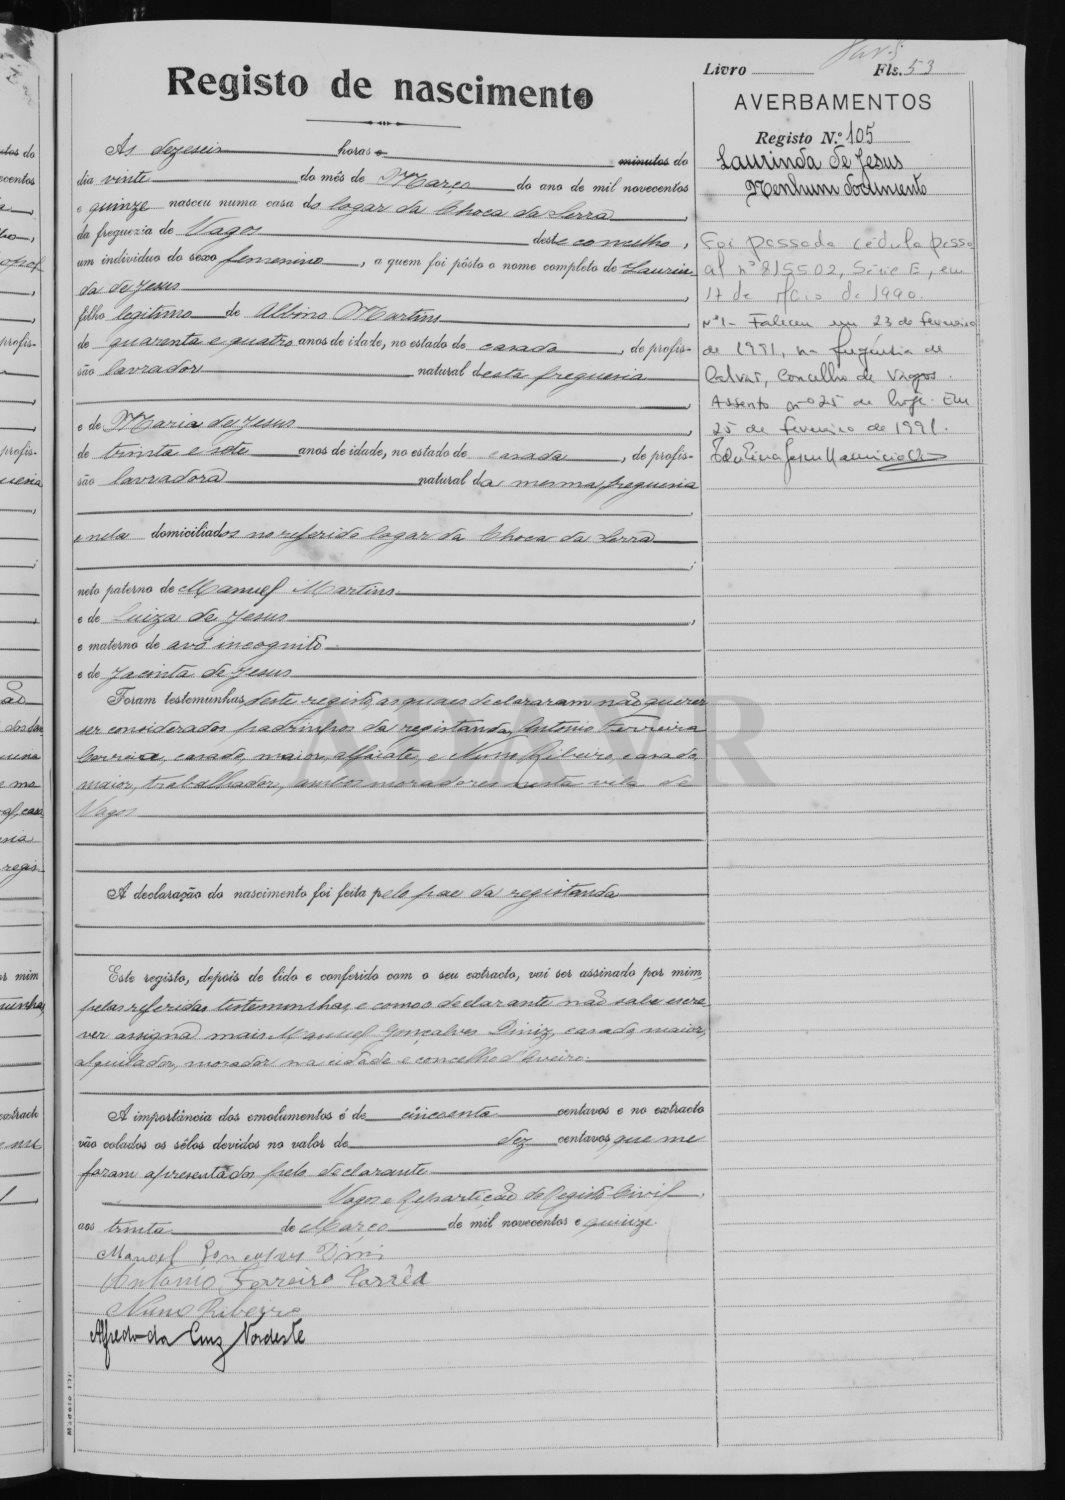 Livro Fls. 53
Registo de nascimento
Às dezeseis horas e minutos do
dia vinte do mês de Março do ano de mil novecentos
e quinze nasceu numa casa do logar da Choca da Serra,
da freguezia de Vagos deste concelho,
um individuo do sexo femenino, a quem foi pôsto o nome completo de Laurin
da de Jesus,
filho legitimo de Albino Martins,
de quarenta e quatro anos de idade, no estado de casado, de profis-
são lavrador natural desta freguesia
e de Maria de Jesus,
de trinta e sete anos de idade, no estado de casada, de profis-
são lavradora natural da mesma freguesia
e nela domiciliados no referido logar da Choca da Serra
neto paterno de Manuel Martins
e de Luiza de Jesus,
e materno de avô incognito
e de Jacinta de Jesus
Foram testemunhas deste registo, as quaes declararam não querer
ser considerados padrinhos da registanda, Antonio Ferreira
Correia, casado, maior, alfaiate, e Nuno Ribeiro, casado,
maior, trabalhador, ambos moradores nesta vila de
Vagos
A declaração do nascimento foi feita pelo pae da registanda
Este registo, depois de lido e conferido com o seu extracto, vai ser assinado por mim,
pelas referidas testemunhas, e como o declarante não sabe escre
ver assigna mais Manuel Gonçalves Diniz, casado, maior,
alquilador, morador na cidade e concelho d'Aveiro.
A importância dos emolumentos é de cincoenta centavos e no extracto
vão colados os sêlos devidos no valor de dez centavos que me
foram apresentados pelo declarante
Vagos e Repartição do Registo Civil,
aos trinta de Março de mil novecentos e quinze.
Manoel Gonçalves Dini
Antonio Ferreira Corrêa
Nuno Ribeiro
Alfredo da Cruz Nordeste
AVERBAMENTOS
Registo N.º 105
Laurinda de Jesus
Nenhum documento
Foi passada cédula pesso
al nº 815502, Série E, em
17 de Maio de 1990.
Nº 1 - Faleceu em 23 de fevereiro
de 1991, na freguesia de
Calvão, concelho de Vagos.
Assento nº 25 de hoje. Em
25 de fevereiro de 1991.
ADAVR